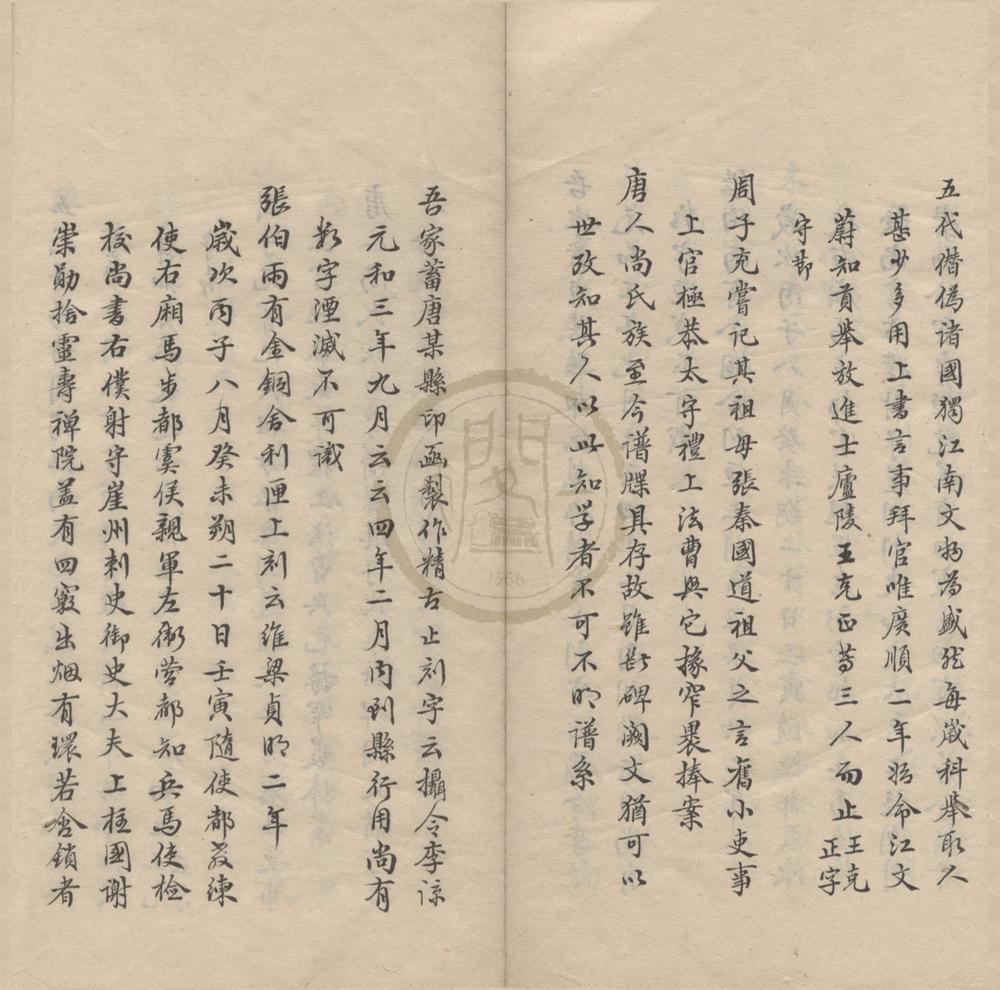 五代僭偽諸國獨江南文物為盛然每歲科舉取人
甚少多用上書言事拜官唯廣順二年始命江文
蔚知貢舉放進士廬陵王克正等三人而止王克正字
守節
周子充嘗記其祖母張秦國道祖父之言舊小吏事
上官極恭太字禮上法曹與它掾窄褁捧案
唐人尚氏族至今譜牒具存故雖斷碑闕文猶可以
世攷知其人以此知学者不可不明譜系
吾家蓄唐某縣印凾製作精古止刻字云攝令李諒
元和三年九月云云四年二月內到縣行用尚有
數字湮滅不可識
張伯雨有金銅舍利匣上刻云維梁貞明二年
歲次丙子八月癸未朔二十日壬寅隨使都教練
使右廂馬步都虞侯親軍左衙營都知兵馬使檢
校尚書右僕射守崖州刺史御史大夫上柱國謝
崇勛捨靈壽禅院盖有四竅出烟有環若含鎖者
閩
1566